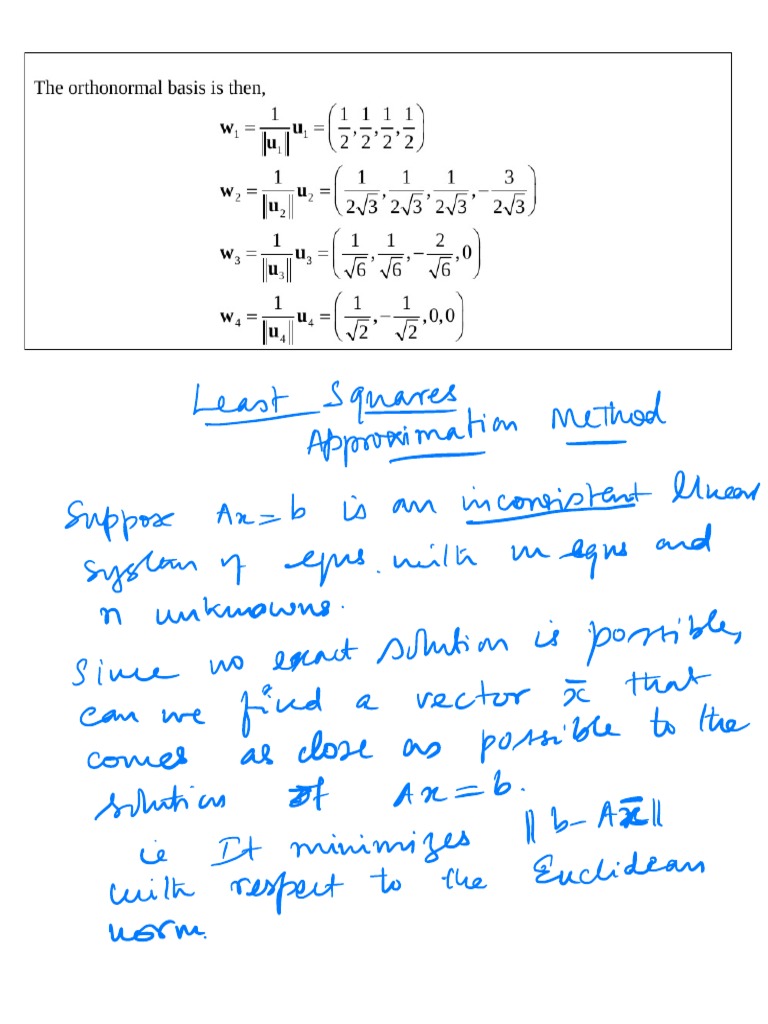 The orthonormal basis is then,
w₁ = 1/‖u₁‖ u₁ = (1/2, 1/2, 1/2, 1/2)
w₂ = 1/‖u₂‖ u₂ = (1/(2√3), 1/(2√3), 1/(2√3), −3/(2√3))
w₃ = 1/‖u₃‖ u₃ = (1/√6, 1/√6, −2/√6, 0)
w₄ = 1/‖u₄‖ u₄ = (1/√2, −1/√2, 0, 0)
Least Squares
Approximation Method
Suppose Ax=b is an inconsistent linear
system of eqns. with m eqns and
n unknowns.
Since no exact solution is possible,
can we find a vector x̄ that
comes as close as possible to the
solution of Ax=b.
ie It minimizes ‖b−Ax̄‖
with respect to the Euclidean
norm.